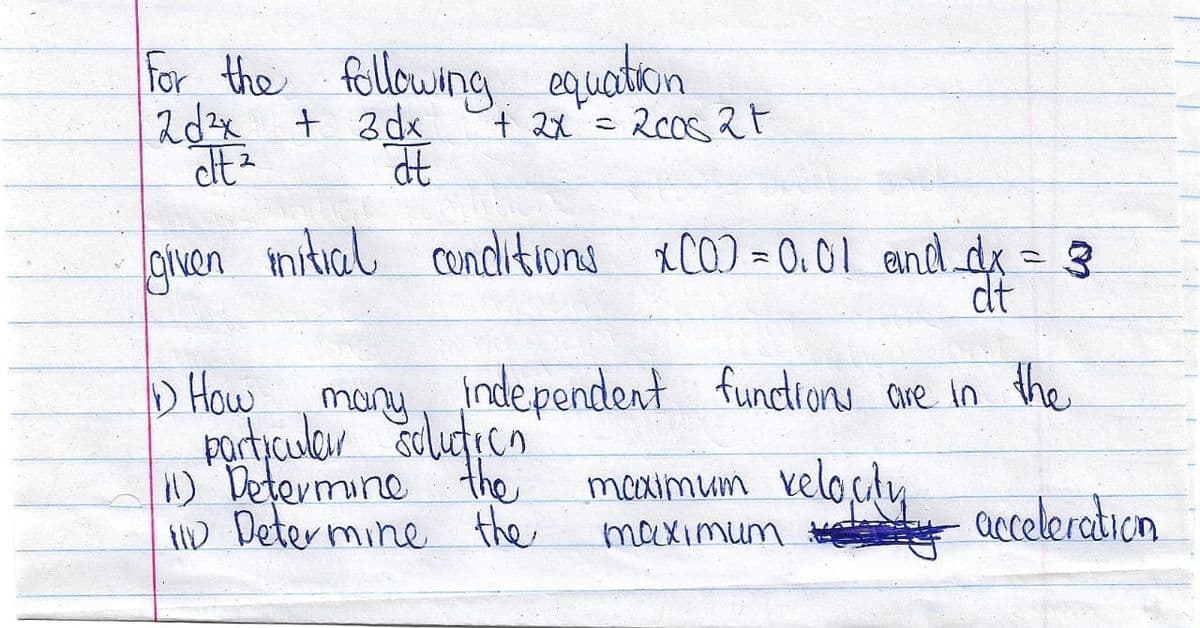 For the following equation
2d²x + 3dx + 2x = 2cos 2t
dt² dt
given initial conditions x(0) = 0.01 and dx = 3
dt
i) How many independent functions are in the
particular solution
ii) Determine the maximum velocity
iii) Determine the maximum acceleration